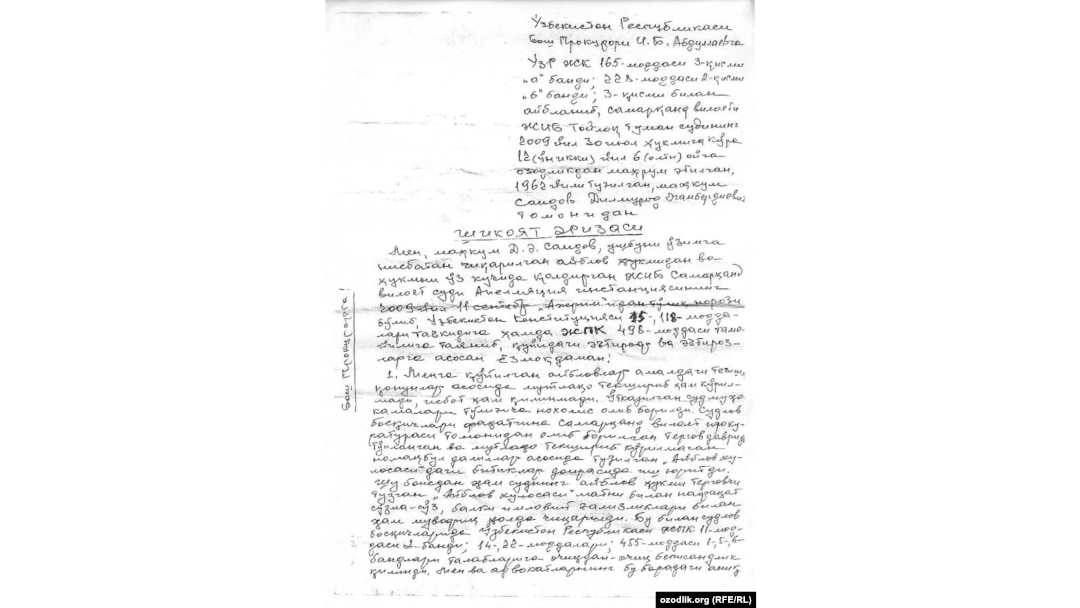 Ўзбекистон Республикаси
Бош Прокурори И. Б. Абдуллаевга
ЎзР ЖК 165-моддаси 3-қисми
„а" банди; 228-моддаси 2-қисми
„б" банди; 3-қисми билан
айбланиб, Самарқанд вилояти
ЖИБ Тойлоқ туман судининг
2009 йил 30 июл ҳукмига кўра
12 (ўн икки) йил 6 (олти) ойга
озодликдан маҳрум этилган,
1962 йили туғилган, маҳкум
Саидов Дилмурод Эгамбердиевич
томонидан
ШИКОЯТ АРИЗАСИ
Мен, маҳкум Д. Э. Саидов, ушбуни ўзимга
нисбатан чиқарилган айблов ҳукмидан ва
ҳукмни ўз кучида қолдирган ЖИБ Самарқанд
вилоят суди Апелляция инстанциясининг
2009 йил 11 сентябр „Ажрим"идан тўлиқ норози
бўлиб, Ўзбекистон Конституцияси 15-, 118-модда-
лари таъкидига ҳамда ЖПК 498-моддаси тамо-
йилига таяниб, қуйидаги эътироф ва эътироз-
ларга асосан ёзмоқдаман:
Бош Прокурорга!
1. Менга қўйилган айбловлар амалдаги тегишли
қонунлар асосида мутлақо текшириб ҳам кўрил-
мади, исбот ҳам қилинмади. Ўтказилган суд муҳо-
камалари тўлиғича нохолис олиб борилди. Судлов
босқичлари фақатгина Самарқанд вилоят проку-
ратураси томонидан олиб борилган тергов даврида
тўпланган ва мутлақо текшириб кўрилмаган
номақбул далиллар асосида тузилган „Айблов ху-
лосаси"даги битиклар доирасида иш юритди.
Шу боисдан ҳам суднинг айблов ҳукми терговчи
тузган „Айблов хулосаси" матни билан нафақат
сўзма-сўз, балки имловий ғализликлари билан
ҳам мувофиқ ҳолда чиқарилди. Бу билан судлов
босқичларида Ўзбекистон Республикаси ЖПК 11-мод-
даси 2-банди; 14-, 22-моддалари; 455-моддаси 1-, 5-, 6-
бандлари талабларига очиқдан-очиқ беписандлик
қилинди. Мен ва адвокатларнинг бу борадаги аниқ
ozodlik.org (RFE/RL)